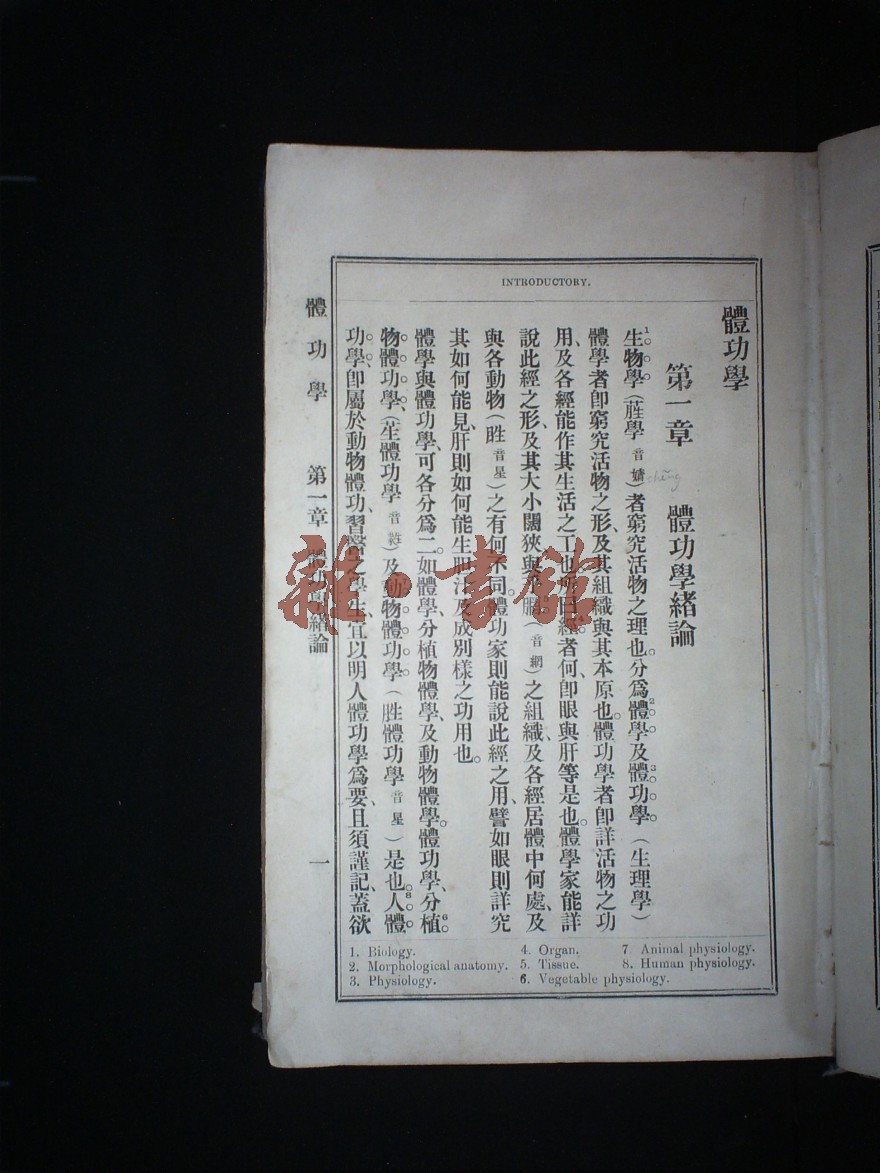 INTRODUCTORY.
體功學
第一章 體功學緒論
生物學(𤯓學音嫞)者窮究活物之理也。分爲體學及體功學。(生理學)
chêng
體學者卽窮究活物之形、及其組織與其本原也。體功學者卽詳活物之功
用、及各經能作其生活之工也。所曰經者何、卽眼與肝等是也。體學家能詳
說此經之形、及其大小闊狹與各(音網)之組織、及各經居體中何處、及
與各動物(貹音星)之有何不同。體功家則能說此經之用、譬如眼則詳究
其如何能見、肝則如何能生胆汁及成別樣之功用也。
體學與體功學、可各分爲二。如體學、分植物體學、及動物體學。體功學、分植
物體功學、(體功學音)及動物體功學(胜體功學音星)是也。人體
功學、卽屬於動物體功、習醫之學生、宜以明人體功學爲要、且須謹記、蓋欲
體功學 第一章 體功學緒論 一
1. Biology.
2. Morphological anatomy.
3. Physiology.
4. Organ.
5. Tissue.
6. Vegetable physiology.
7. Animal physiology.
8. Human physiology.
雜·書館